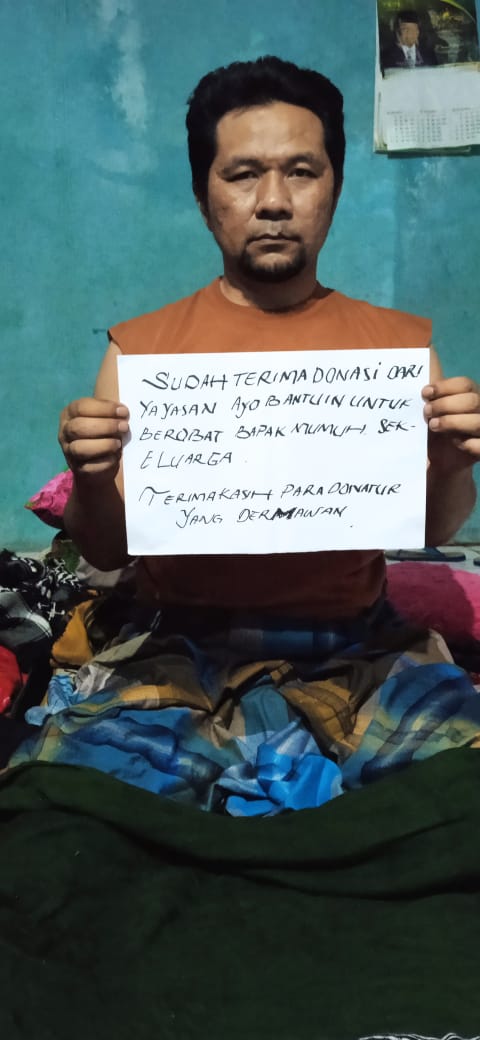 SUDAH TERIMA DONASI DARI
YAYASAN AYO BANTUIN UNTUK
BEROBAT BAPAK MUMUH. SEK-
ELUARGA.
TERIMAKASIH PARA DONATUR
YANG DERMAWAN.